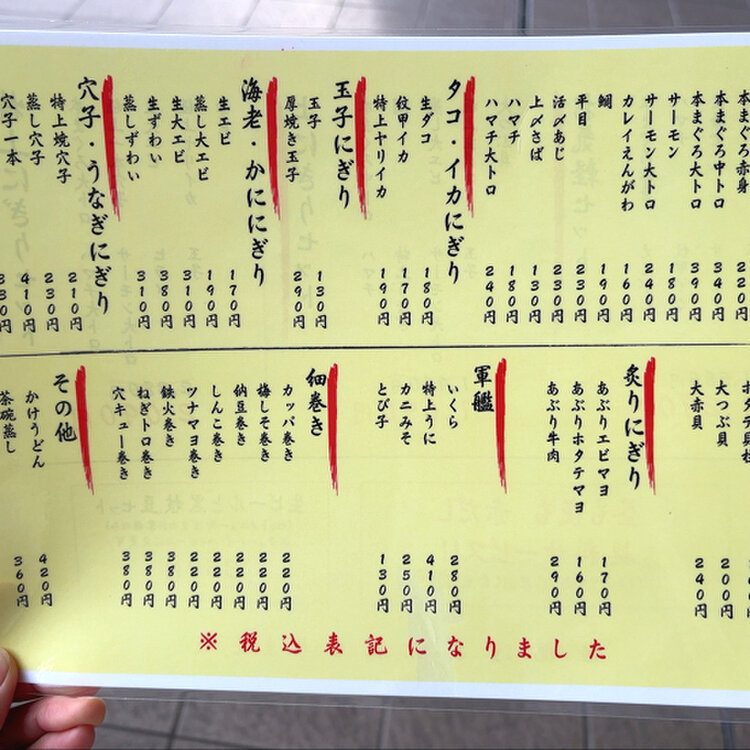 本まぐろ赤身 220円
本まぐろ中トロ 340円
本まぐろ大トロ 390円
サーモン 180円
サーモン大トロ 240円
カレイえんがわ 160円
鯛 190円
平目 230円
活〆あじ 230円
上〆さば 130円
ハマチ 180円
ハマチ大トロ 240円
タコ・イカにぎり
生ダコ 180円
紋甲イカ 170円
特上ヤリイカ 190円
玉子にぎり
玉子 130円
厚焼き玉子 290円
海老・かににぎり
生エビ 170円
蒸し大エビ 190円
生大エビ 310円
生ずわい 380円
蒸しずわい 310円
穴子・うなぎにぎり
特上焼穴子 210円
蒸し穴子 230円
穴子一本 410円
330円
ホタテ貝柱
大つぶ貝 200円
大赤貝 240円
炙りにぎり
あぶりエビマヨ 170円
あぶりホタテマヨ 160円
あぶり牛肉 290円
軍艦
いくら 280円
特上うに 410円
カニみそ 250円
とび子 130円
細巻き
カッパ巻き 220円
梅しそ巻き 220円
納豆巻き 220円
しんこ巻き 220円
ツナマヨ巻き 220円
鉄火巻き 380円
ねぎトロ巻き 380円
穴キュー巻き 380円
その他
かけうどん 420円
茶碗蒸し 360円
※税込表記になりました